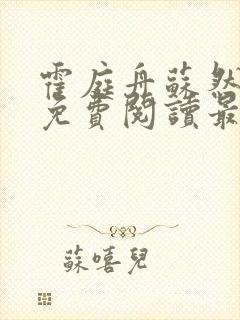 霍庭舟蘇然
免費閱讀最
蘇嘻兒